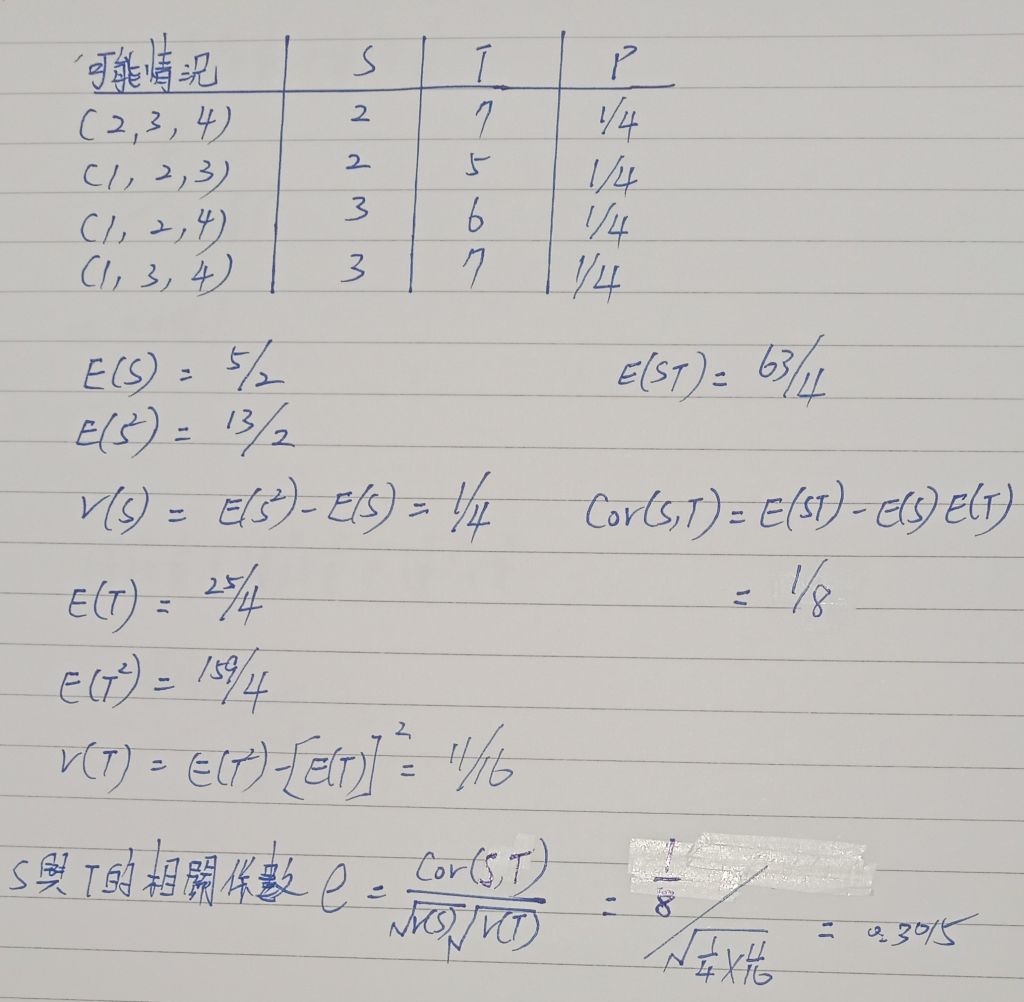 可能情況 S T P
(2,3,4) 2 7 1/4
(1,2,3) 2 5 1/4
(1,2,4) 3 6 1/4
(1,3,4) 3 7 1/4
E(S) = 5/2 E(ST) = 63/4
E(S²) = 13/2
V(S) = E(S²) - E(S) = 1/4 Cov(S,T) = E(ST) - E(S)E(T)
E(T) = 25/4 = 1/8
E(T²) = 159/4
V(T) = E(T²) - [E(T)]² = 11/16
S與T的相關係數 ρ = Cov(S,T) / √V(S) √V(T) = 1/8 / √(1/4 × 11/16) = 0.3015